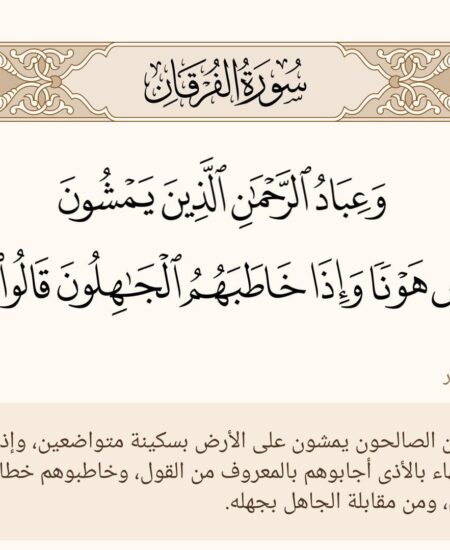 سُورَةُ الفُرْقَانِ
وَعِبَادُ ٱلرَّحْمَٰنِ ٱلَّذِينَ يَمْشُونَ
هَوْنًا وَإِذَا خَاطَبَهُمُ ٱلْجَٰهِلُونَ قَالُوا۟
الصالحون يمشون على الأرض بسكينة متواضعين، وإذ
بالأذى أجابوهم بالمعروف من القول، وخاطبوهم خطا
، ومن مقابلة الجاهل بجهله.